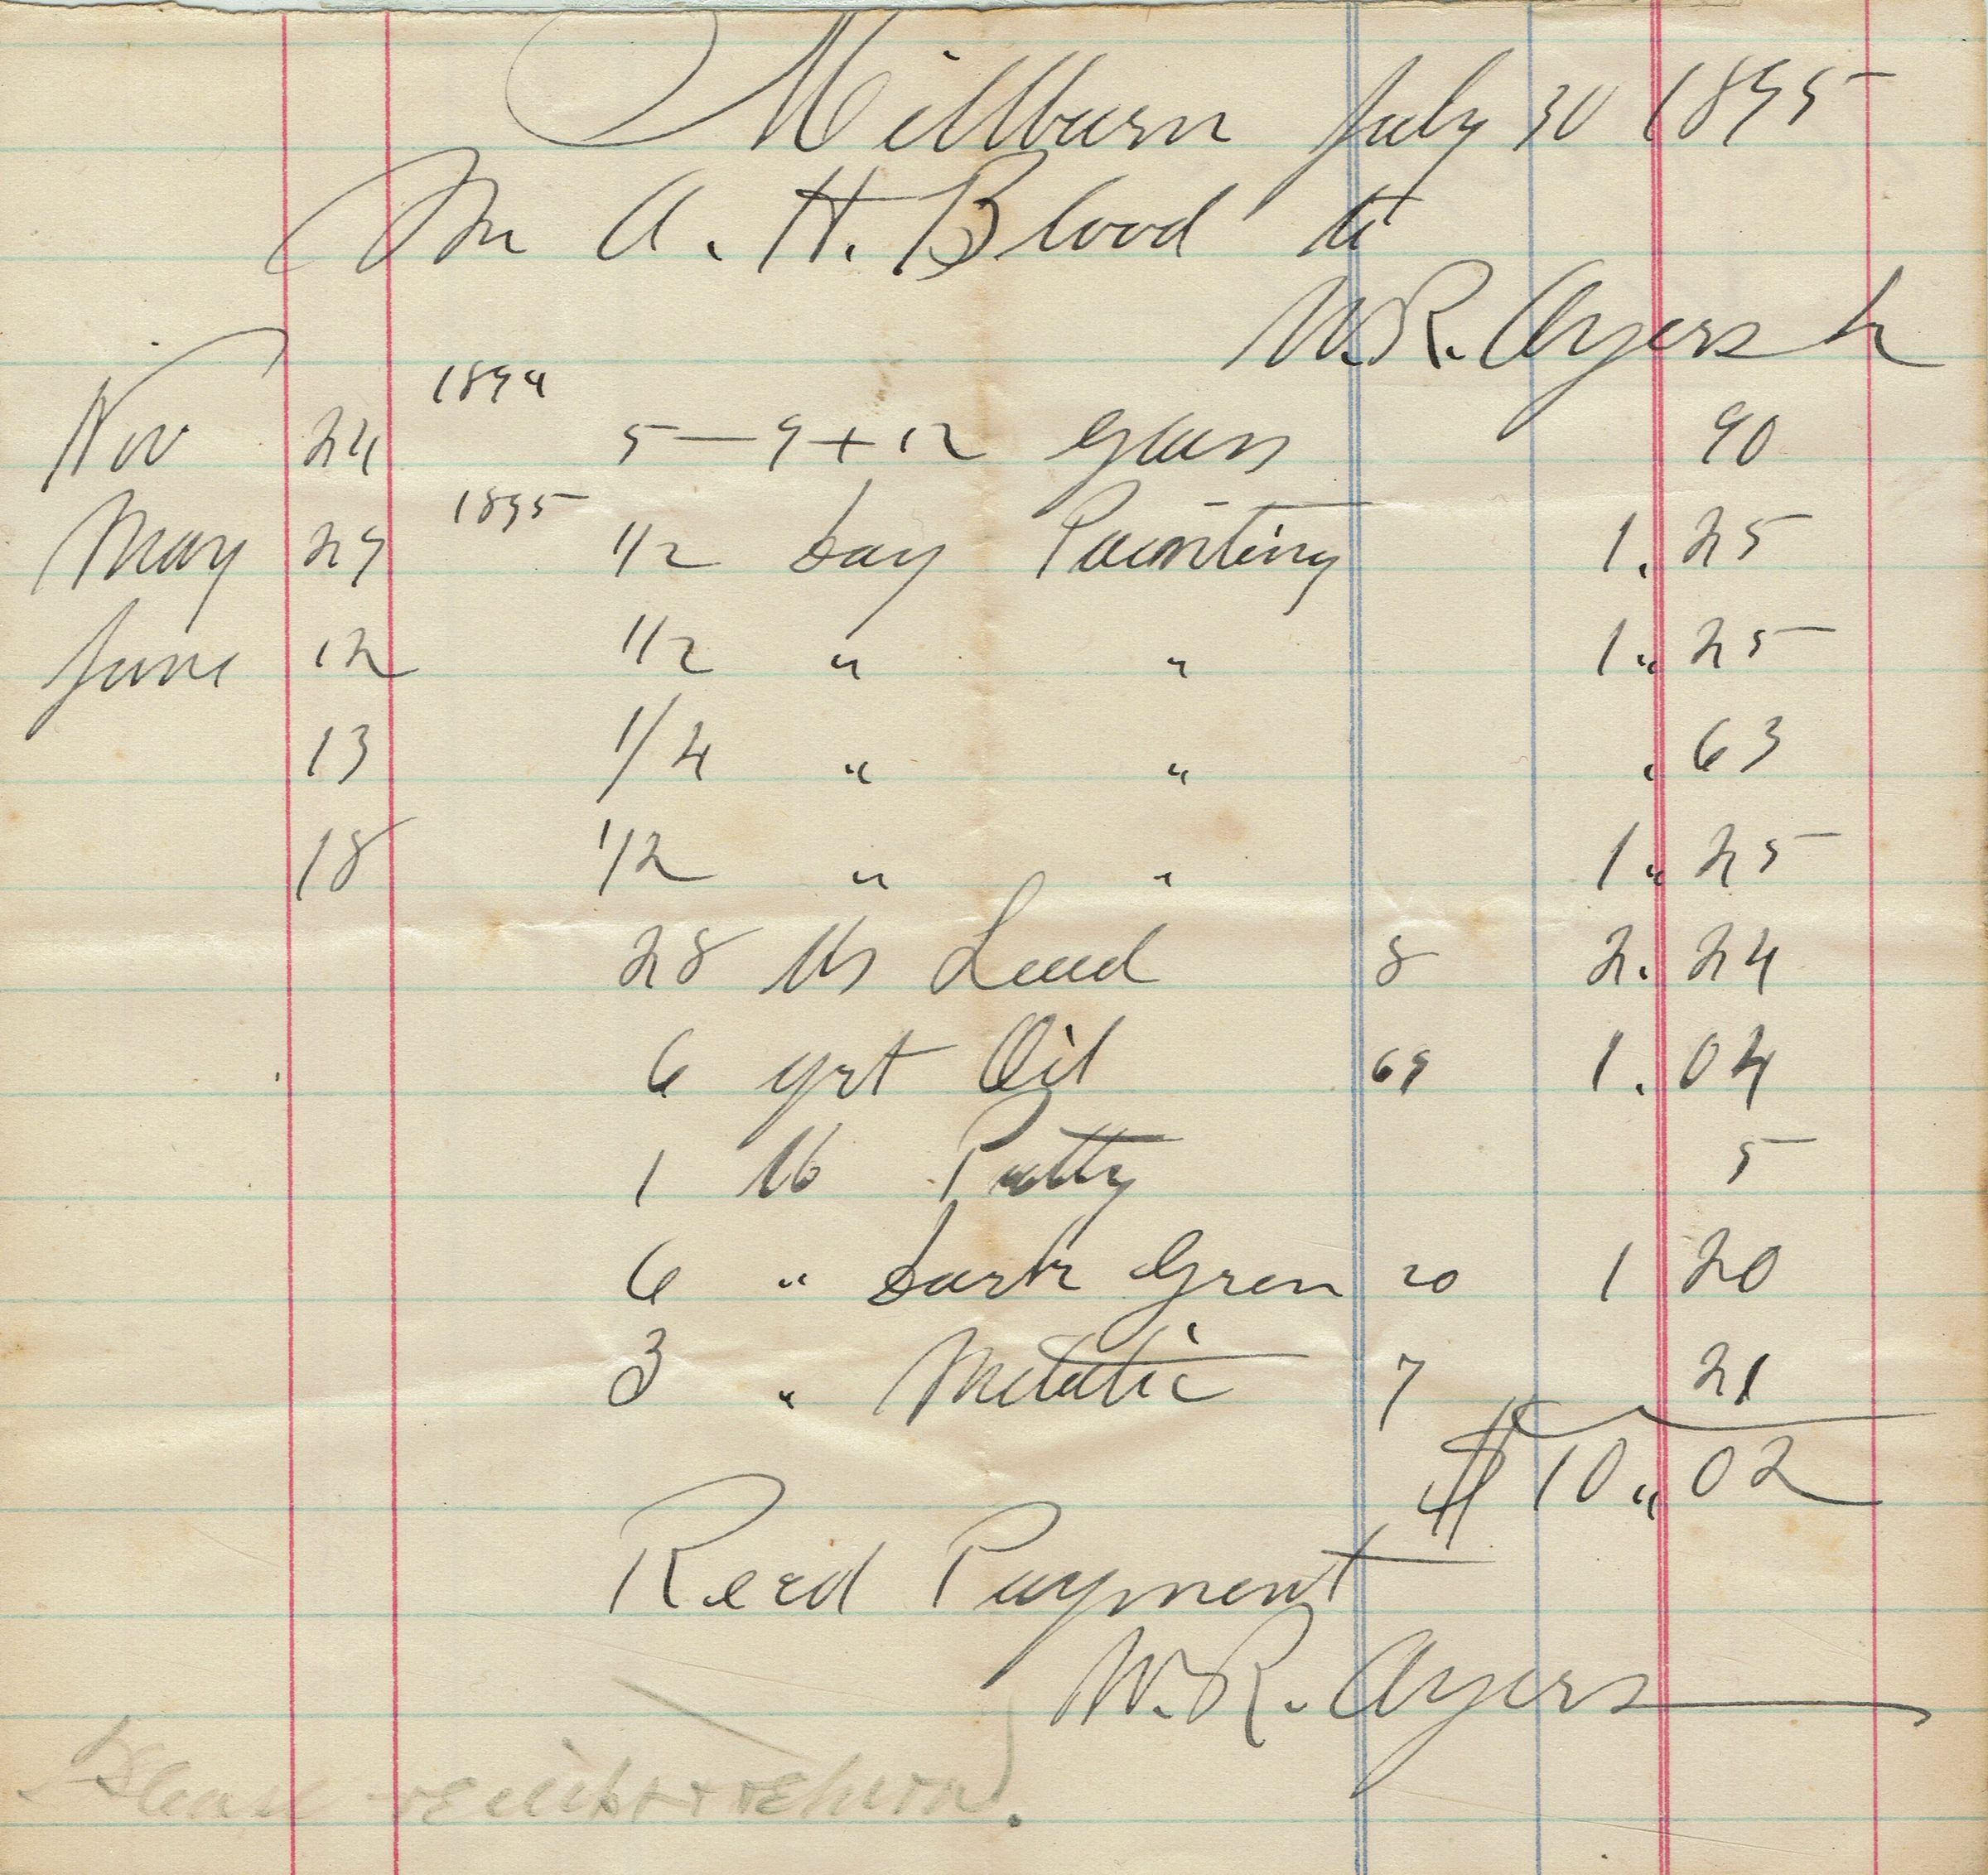 Millburn July 30 1895
Mr A. H. Blood to
W. R. Ayers Dr
1894
Nov 24 5 — 9 + 12 Glass 90
1895
May 29 1/2 Day Painting 1. 25
June 12 1/2 " " 1 " 25
13 1/4 " " . 63
18 1/2 " " 1 " 25
28 lbs Lead 8 2. 24
6 qrt Oil 69 1. 04
1 lb Putty 5
6 " Dark Gren 20 1 20
3 " Metatic 7 21
$ 10 " 02
Recd Payment
W. R. Ayers
Please receipt & return.